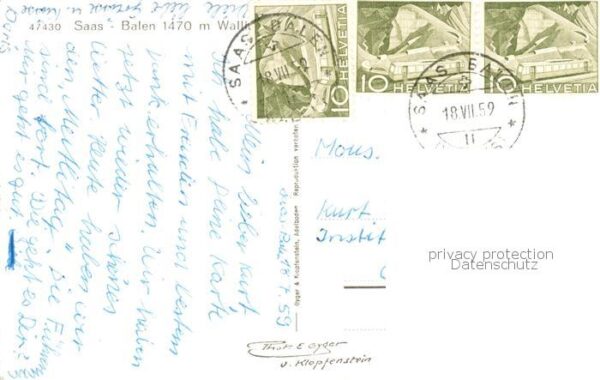 47430 Saas - Balen 1470 m
SAAS BALEN
18.VII.59
10 HELVETIA
10 HELVETIA
10 HELVETIA
SAAS BALEN
18.VII.59
Saas Balen 18.7.59
Mein lieber Kurt
habe Deine Karte
mit Freuden und bestem
Dank erhalten. Wir haben
jetzt wieder schönes
Wetter. Heute haben wir
sind fort. Wie geht es Dir?
mir geht es gut.
Doris
Gyger & Klopfenstein, Adelboden Reproduction verboten
Mons.
Kurt
Instit
privacy protection
Datenschutz
Phot. E. Gyger
u. Klopfenstein